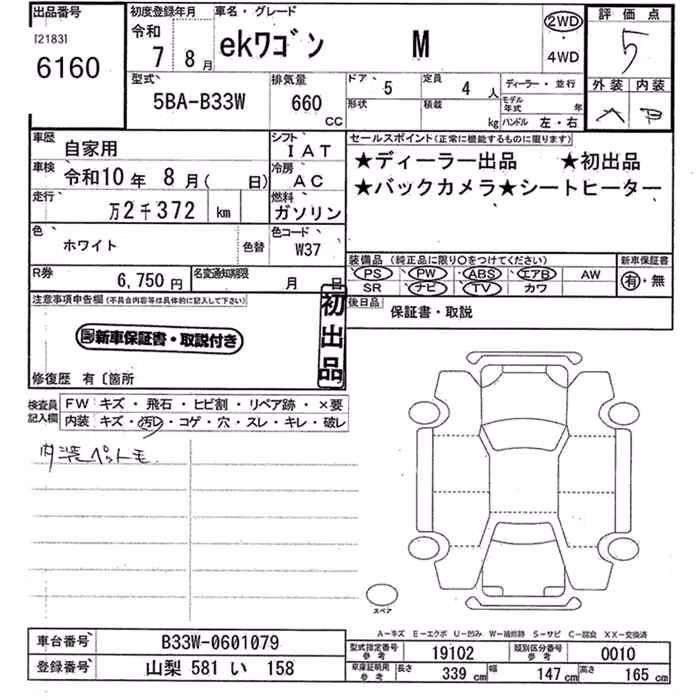 出品番号 初度登録年月 車名・グレード 評価点
[2183] 令和 ekワゴン M 2WD 5
6160 7年 8月 ・4WD
型式 排気量 ドア 5 定員 4人 ディーラー・並行 外装 内装
5BA-B33W 660 CC 形状 積載 kg モデル年式 年 ハンドル 左・右 A B
車歴 自家用 シフト IAT セールスポイント(正常に機能するものに限ります)
車検 令和10年 8月( 日) 冷房 AC ★ディーラー出品 ★初出品
走行 万2千372 km 燃料 ガソリン ★バックカメラ★シートヒーター
色 ホワイト 色替 色コード W37
装備品 (純正品に限り○をつけてください) 新車保証書
R券 6,750円 名変通知期限 月 日 PS PW ABS エアB AW 有・無
SR ナビ TV カワ
注意事項申告欄(不具合内容等は具体的に記入して下さい) 初出品 後日品 保証書・取説
新車保証書・取説付き
修復歴 有〔箇所
検査員記入欄 FW キズ・飛石・ヒビ割・リペア跡・×要
内装 キズ・汚レ・コゲ・穴・スレ・キレ・破レ
内装ペットモ
スペア
A-キズ E-エクボ U-凹み W-補修跡 S-サビ C-腐食 XX-交換済
車台番号 B33W-0601079 型式指定番号 参考 19102 類別区分番号 参考 0010
登録番号 山梨 581 い 158 車庫証明用 参考 長さ 339 cm 幅 147 cm 高さ 165 cm